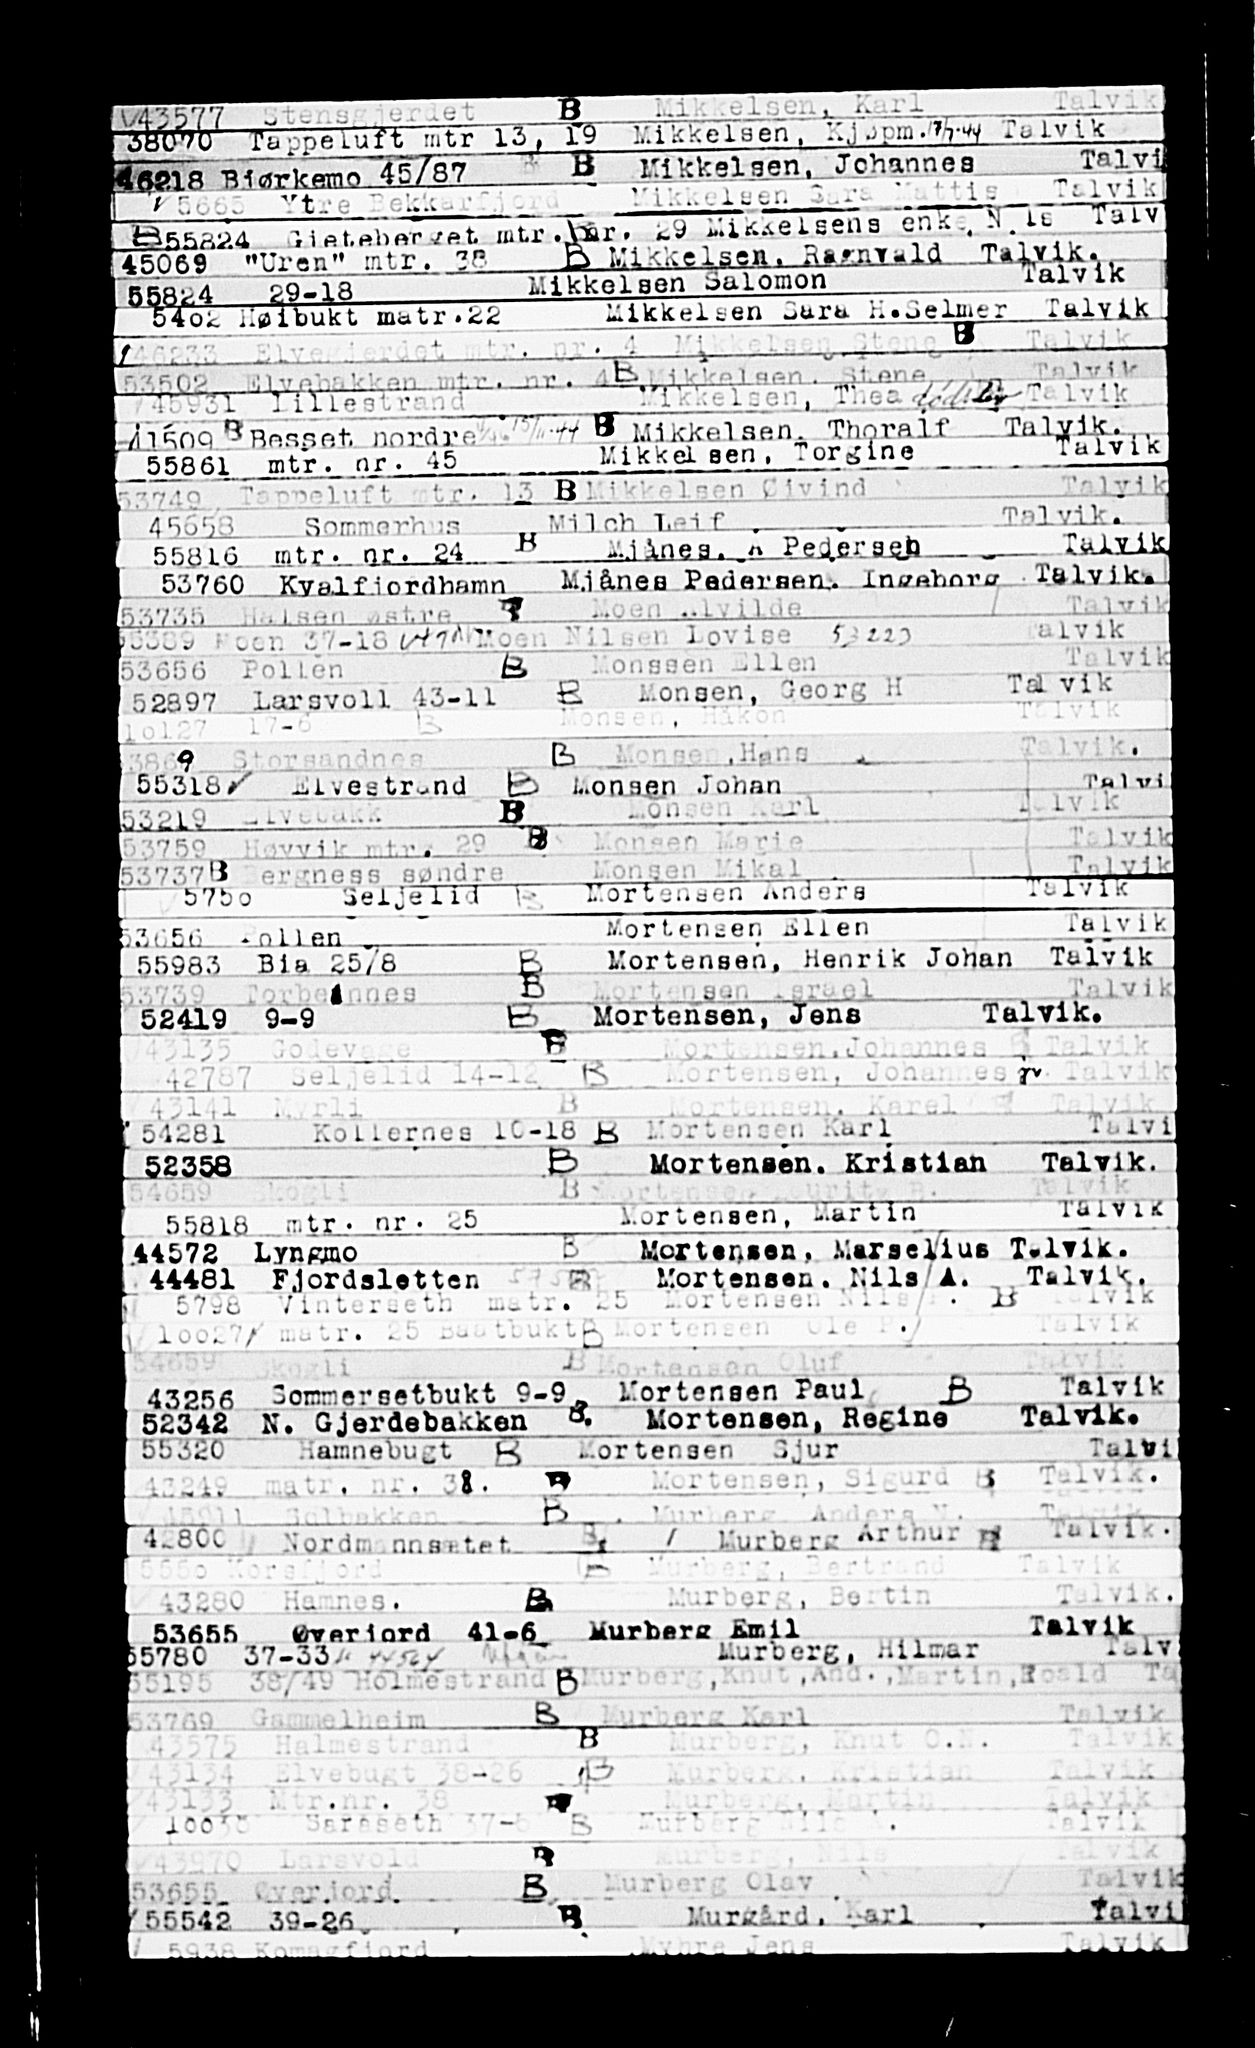 43577 Stensgjerdet B Mikkelsen, Karl Talvik
38070 Tappeluft mtr 13, 19 Mikkelsen, Kjøpm. 17/7-44 Talvik
46218 Bjørkemo 45/87 B Mikkelsen, Johannes Talvi
5665 Ytre Bekkarfjord Mikkelsen Sara Mattis Talvik
B 55824 Gjeteberget mtr. nr. 29 Mikkelsens enke, N. ls Talv
45069 "Uren" mtr. 38 B Mikkelsen, Ragnvald Talvik.
55824 29-18 Mikkelsen Salomon Talvik
5402 Høibukt matr.22 Mikkelsen Sara H.Selmer Talvik
46233 Elvegjerdet mtr. nr. 4 Mikkelsen Steng B Talvik
53502 Elvebakken mtr. nr. 4 B Mikkelsen, Stene Talvik
45931 Lillestrand Mikkelsen, Thea Talvik
41509 B Besset nordre 15/11-44 B Mikkelsen, Thoralf Talvik.
55861 mtr. nr. 45 Mikkelsen, Torgine Talvik
53749 Tappeluft mtr. 13 B Mikkelsen Øivind Talvik
45658 Sommerhus Milch Leif Talvik.
55816 mtr. nr. 24 B Mjånes, A Pedersen Talvik
53760 Kvalfjordhamn Mjånes Pedersen, Ingeborg Talvik.
53735 Halsen østre Moen Alvilde Talvik
55389 Moen 37-18 Moen Nilsen Lovise 53223 Talvik
53656 Pollen B Monssen Ellen Talvik
52897 Larsvoll 43-11 B Monsen, Georg H Talvik
10127 17-6 B Monsen, Håkon Talvik
3869 Storsandnes B Monsen, Hans Talvik.
55318 Elvestrand B Monsen Johan Talvi
53219 Elvebakk B Monsen Karl Talvik
53759 Høvvik mtr. 29 B Monsen Marie Talvik
53737 B Bergness søndre Monsen Mikal Talvik
5750 Seljelid B Mortensen Anders Talvik
53656 Pollen Mortensen Ellen Talvik
55983 Bia 25/8 B Mortensen, Henrik Johan Talvik
53739 Torbernnes B Mortensen Israel Talvik
52419 9-9 B Mortensen, Jens Talvik.
43135 Godevage B Mortensen, Johannes B Talvik
42787 Seljelid 14-12 B Mortensen, Johannes jr. Talvik
43141 Myrli B Mortensen, Karel Talvik
54281 Kollernes 10-18 B Mortensen Karl Talvi
52358 B Mortensen. Kristian Talvik.
54659 Skogli B Mortensen Laurits B. Talvik
55818 mtr. nr. 25 Mortensen, Martin Talvik
44572 Lyngmo B Mortensen, Marselius Talvik.
44481 Fjordsletten B Mortensen. Nils A. Talvik.
5798 Vinterseth matr. 25 Mortensen Nils B Talvik
10027 matr. 25 Baatbukt B Mortensen Ole P. Talvik
54659 Skogli B Mortensen Oluf Talvik
43256 Sommersetbukt 9-9 Mortensen Paul B Talvik
52342 N. Gjerdebakken B. Mortensen, Regine Talvik.
55320 Hamnebugt B Mortensen Sjur Talvi
43249 matr. nr. 38. B Mortensen, Sigurd B Talvik.
45911 Solbakken B Murberg Anders N. Talvik
42800 Nordmannsætet B Murberg Arthur Talvik.
5550 Korsfjord B Murberg, Bertrand Talvik
43280 Hamnes. B Murberg, Bertin Talvik.
53655 Øverjord 41-6 Murberg Emil Talvik
55780 37-33 44524 Murberg, Hilmar Talv
55195 38/49 Holmestrand B Murberg,Knut,And.,Martin,Roald Ta
53769 Gammelheim B Murberg Karl Talvik
43575 Halmestrand B Murberg, Knut O.N. Talvik
43134 Elvebugt 38-26 B Murberg, Kristian Talvik
43133 Mtr.nr. 38 Murberg, Martin Talvik
10038 Saraseth 37-6 B Murberg Nils Talvik
43270 Larsvold B Murberg, Nils Talvik
53655 Øverjord B Murberg Olav Talvik
55542 39-26 B Murgård, Karl Talvi
5938 Komagfjord Myhre Jens Talvik